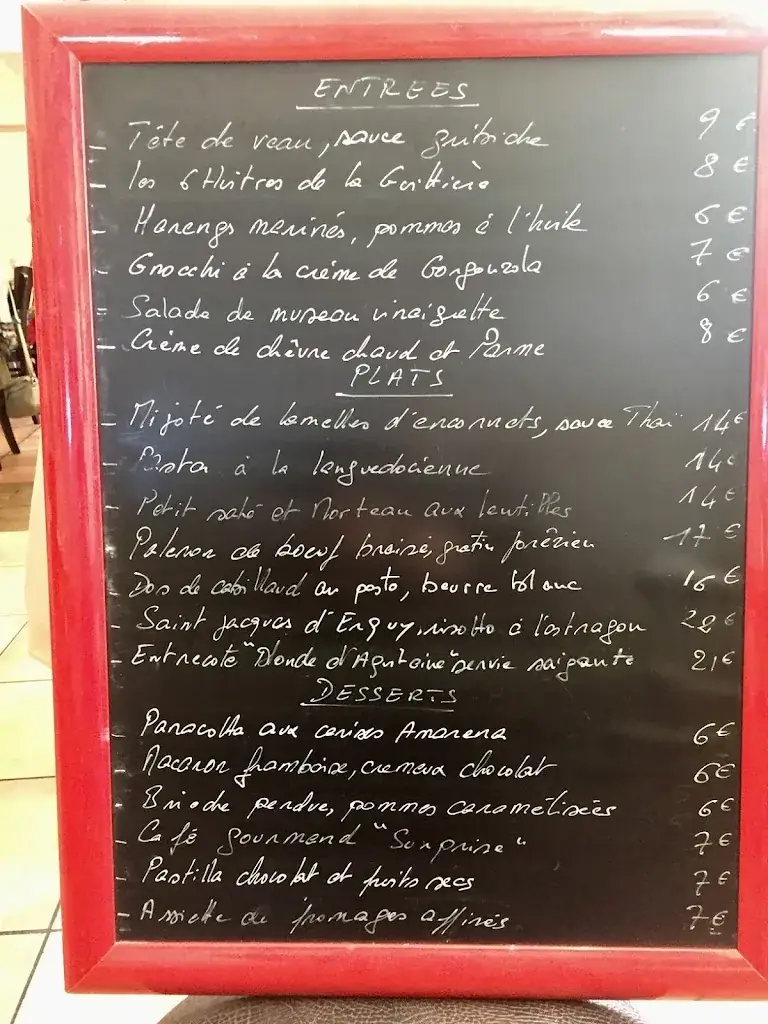 ENTREES
- Tête de veau, sauce gribiche 9 €
- les 6 Huîtres de la Guittière 8 €
- Harengs marinés, pommes à l'huile 6 €
- Gnocchi à la crème de Gorgonzola 7 €
- Salade de museau vinaigrette 6 €
- Crème de chèvre chaud et Parme 8 €
PLATS
- Mijoté de lamelles d'encornets, sauce Thaï 14€
- à la languedocienne 14€
- Petit salé et Morteau aux lentilles 14€
- Paleron de boeuf braisé, gratin 17 €
- Dos de cabillaud au pesto, beurre blanc 16 €
- Saint Jacques d'Erquy, risotto à l'estragon 22 €
- Entrecote "Blonde d'Aquitaine" servie saignante 21€
DESSERTS
- Panacotta aux cerises Amarena 6€
- Macaron framboise, cremeux chocolat 6€
- Brioche perdue, pommes caramélisées 6€
- Café gourmand "Surprise" 7€
- Pastilla chocolat et fruits secs 7€
- Assiette de fromages affinés 7€